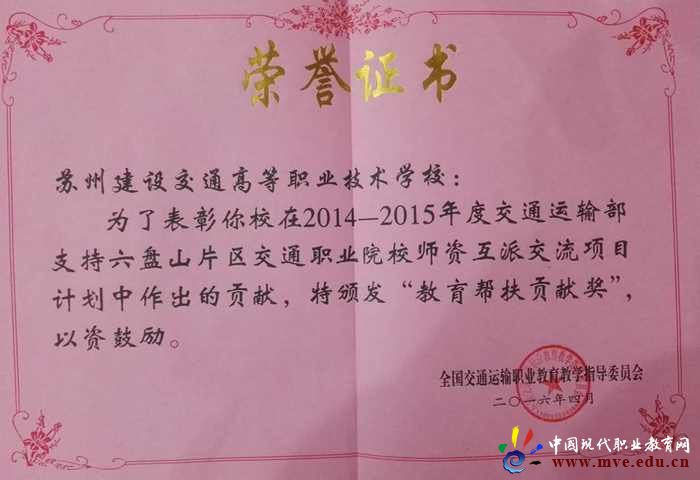 荣誉证书
苏州建设交通高等职业技术学校：
为了表彰你校在2014—2015年度交通运输部
支持六盘山片区交通职业院校师资互派交流项目
计划中作出的贡献，特颁发“教育帮扶贡献奖”，
以资鼓励。
全国交通运输职业教育教学指导委员会
二〇一六年四月
中国现代职业教育网
www.mve.edu.cn